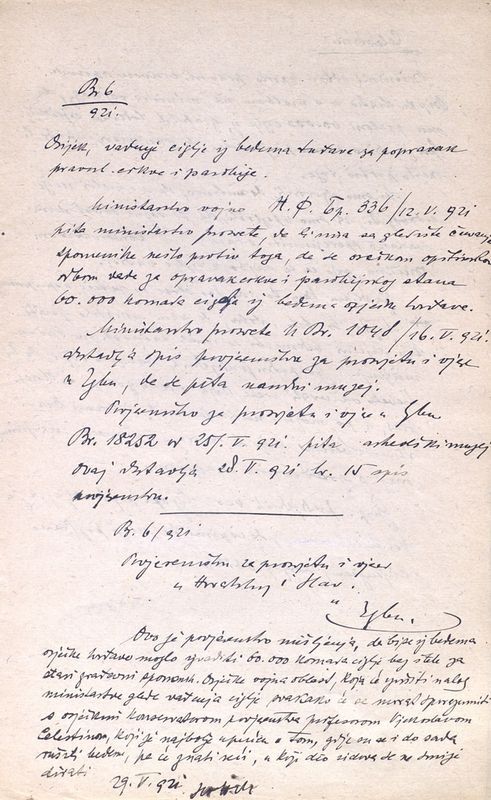 Br. 6
921.
Osijek, vađenje ciglje iz bedema tvrđave za popravak
pravosl. crkve i parohije.
Ministarstvo vojno Н. Ф. Бр. 336/12. V. 921
pita ministarstvo prosvete, da li ima sa gledišta čuvanja
spomenika nešto protiv toga, da se osečkom opštinskom
odboru dade za opravak crkve i parohijskog stana
60.000 komada ciglja iz bedema osječke tvrđave.
Ministarstvo prosvete U. Br. 1048/16. V. 921.
dostavlja spis povjereništvu za prosvjetu i vjere
u Zgbu, da se pita narodni muzej.
Povjereništvo za prosvjetu i vjere u Zgbu
Br. 18252 od 25/. V. 921. pita arheološki muzej
ovaj dostavlja 28. V. 921 br. 15 spis
povjerenstvu.
Br. 6/921
Povjereništvu za prosvjetu i vjere
u Hrvatskoj i Slav.
u Zgbu.
Ovo je povjerenstvo mišljenja, da bi se iz bedema
osječke tvrđave moglo izvaditi 60.000 komada ciglje bez štete za
stari građevni spomenik. Osječka vojna oblast, koja će izvršiti nalog
ministarstva glede vađenja ciglje svakako će se morati sporazumiti
s osječkim konservatorom povjerenstva profesorom Vjekoslavom
Celestinom, koji je najbolje upućen o tom, gdje su se i do sada
rušili bedemi, pa će znati reći, u koji dio zidova se ne smije
dirati
29. V. 921.